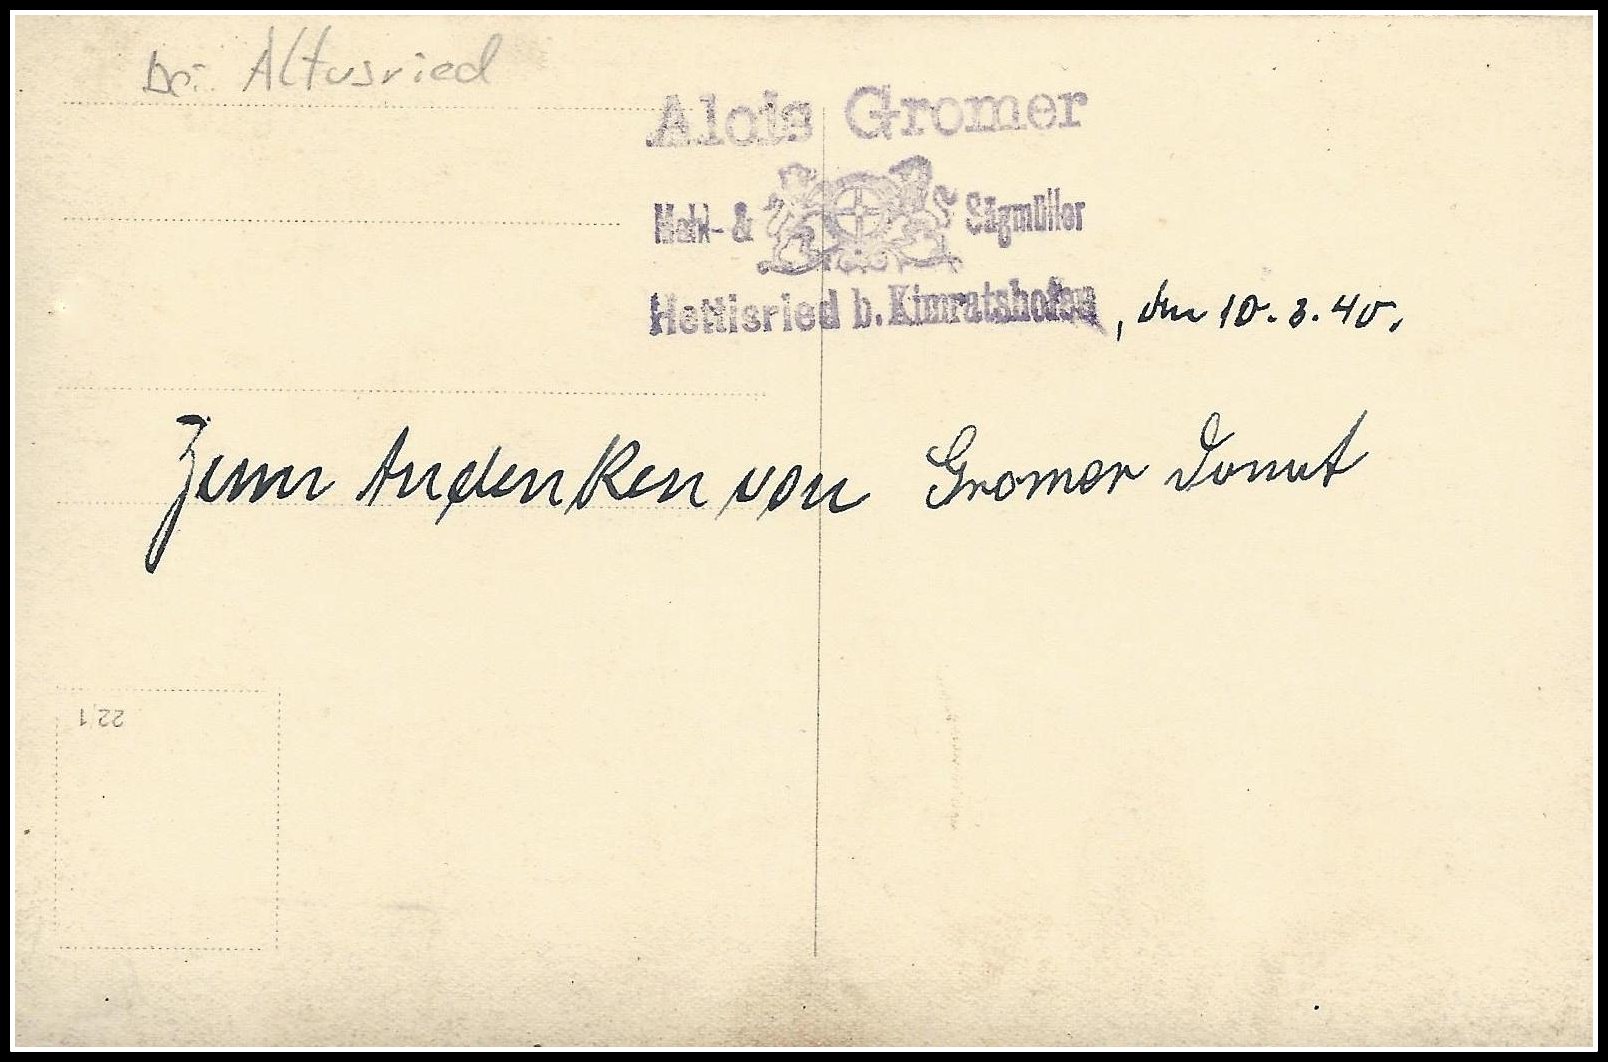 bei Altusried
Alois Gromer
Mahl- & Sägmüller
Hettisried b. Kimratshofen, den 10.3.40.
Zum Andenken von Gromer Donat
22,1